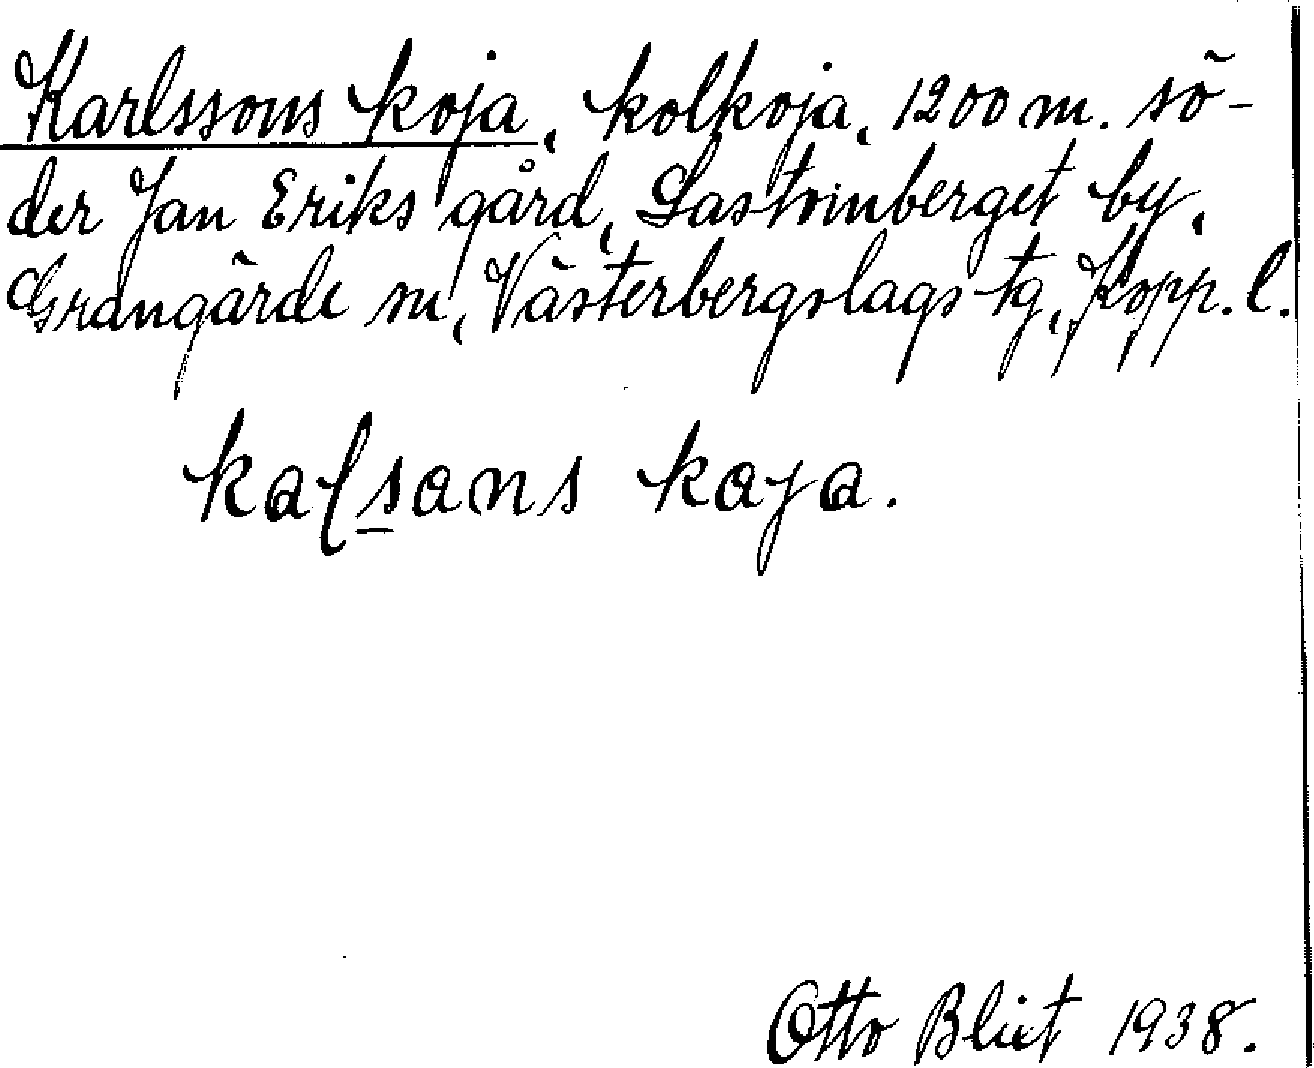 Karlssons koja, kolkoja, 1200 m. sö-
der Jan Eriks gård, Lastomberget by,
Grangärde sn, Västerbergslags tg, Kopp. l.
kaʃsans kaja.
Otto Blixt 1938.